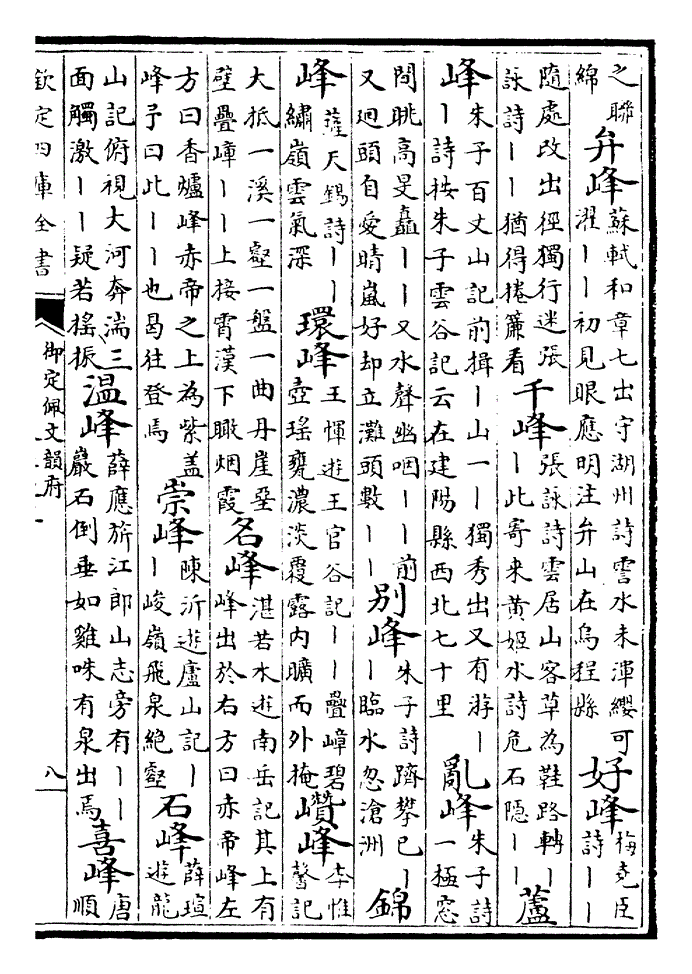 之聯綿 弁峰 蘇軾和章七出守湖州詩霅水未渾纓可濯丨丨初見眼應明注弁山在烏程縣 好峰 梅堯臣詩丨丨
隨處改出徑獨行迷張詠詩丨丨猶得捲簾看 千峰 張詠詩雲居山客草為鞋路轉丨丨此寄來黃姬水詩危石隱丨丨 蘆
峰 朱子百丈山記前揖丨山一丨獨秀出又有游丨丨詩按朱子雲谷記云在建陽縣西北七十里 亂峰 朱子詩一極窓
間眺高旻矗丨丨又水聲幽咽丨丨前又廻頭自愛晴嵐好却立灘頭數丨丨 别峰 朱子詩躋攀已丨丨臨水忽滄洲 錦
峰 薩天錫詩丨丨繡嶺雲氣深 環峰 王惲遊王官谷記丨丨疊嶂碧壺瑤甕濃淡覆露内曠而外掩 巑峰 李惟馨記
大抵一溪一壑一盤一曲丹崖堊壁疊嶂丨丨上接霄漢下瞰烟霞 名峰 湛若水遊南岳記其上有峰出於右方曰赤帝峰左
方曰香爐峰赤帝之上為紫盖峰予曰此丨丨也曷往登焉 崇峰 陳沂遊廬山記丨丨峻嶺飛泉絶壑 石峰 薛瑄遊龍
山記俯視大河奔湍三面觸激丨丨疑若揺振 温峰 薛應旂江郎山志旁有丨丨巖石倒垂如雞咮有泉出焉 喜峰 唐順
欽定四庫全書
御定佩文韻府
八